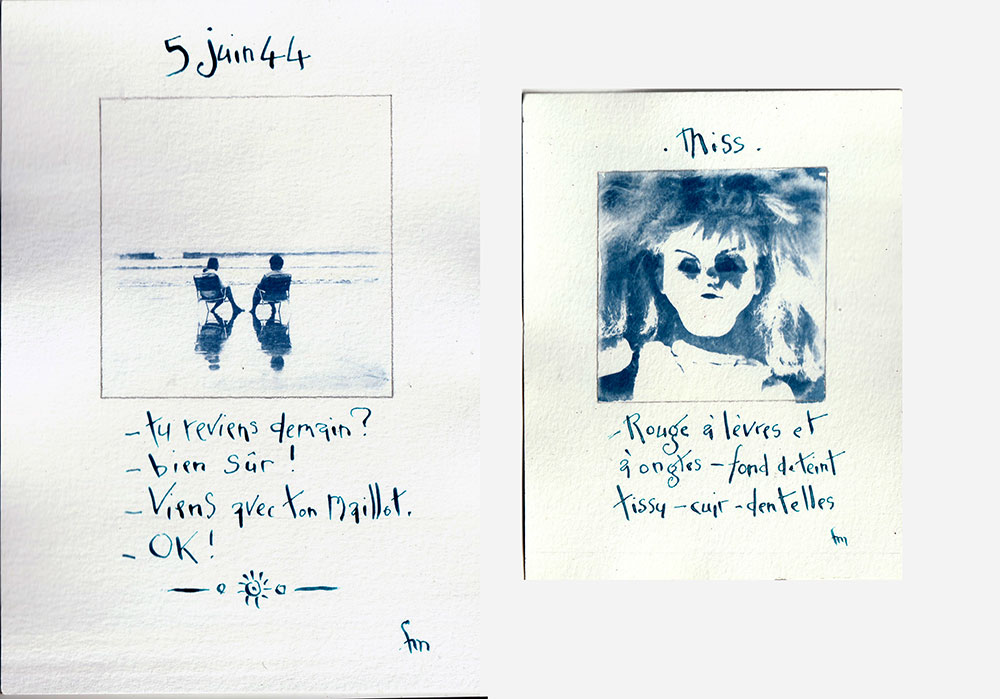 5 juin 44
- tu reviens demain?
- bien sûr !
- Viens avec ton Maillot.
- OK !
fm
. Miss .
- Rouge à lèvres et
à ongles - fond de teint
tissu - cuir - dentelles
fm